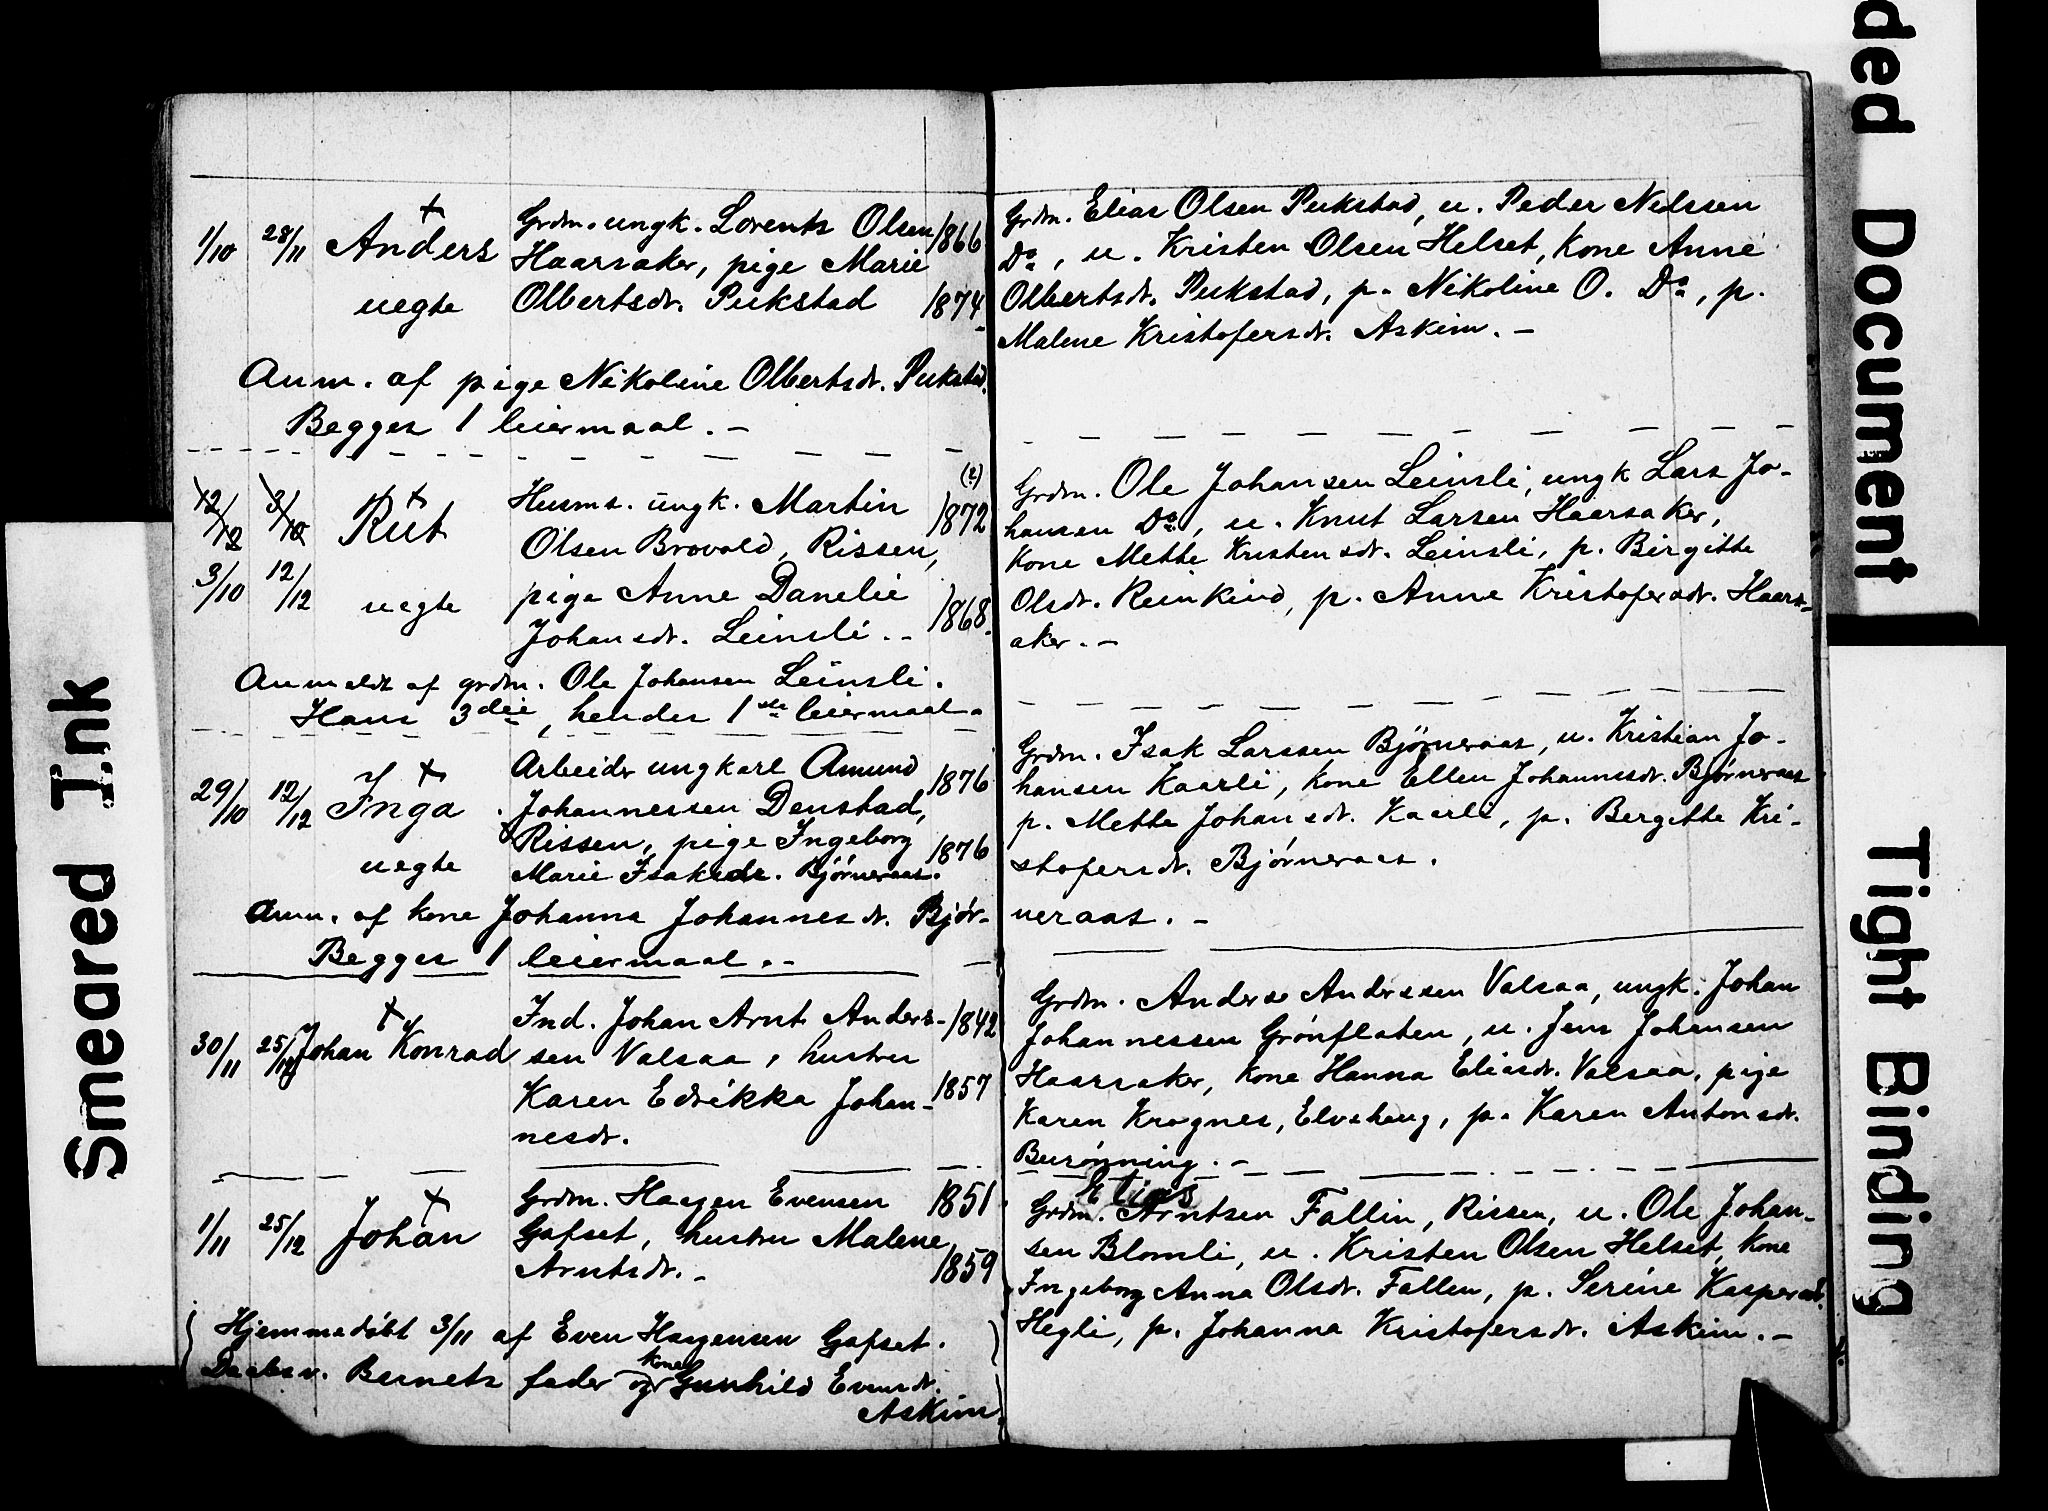 ded Document
Smeared Ink
Tight Binding
1/10 28/11 Anders
uegte
Grdm. ungk. Lorents Olsen 1866
Haarsaker, pige Marie
Olbertsdr. Pukstad 1874
Anm. af pige Nikoline Olbertsdr. Pukstad.
Begges 1 leiermaal. –
12/12 3/10 Rut
3/10 12/12 uegte
(2)
Husms. ungk. Martin 1872
Olsen Brovold, Rissen,
pige Anne Danelie 1868.
Johansdr. Leinsli. –
Anmeldt af grdm. Ole Johansen Leinsli.
Hans 3die, hendes 1ste leiermaal.
29/10 12/12 Inga
uegte
Arbeider ungkarl Amund 1876
Johannessen Denstad,
Rissen, pige Ingeborg 1876
Marie Isaksdr. Bjørneraas.
Anm. af kone Johanna Johannesdr. Bjør-
Begges 1 leiermaal. –
30/11 25/12 Johan Konrad
Ind. Johan Arnt Anders- 1842
sen Valsaa, hustru
Karen Edrikka Johan- 1857
nesdr.
1/11 25/12 Johan
Grdm. Haagen Evensen 1851
Gafset, hustru Malene
Arntsdr. – 1859
Hjemmedøbt 3/11 af Even Haagensen Gafset.
Daabsv. Barnets fader og kone Gunhild Evensdr.
Askim
Grdm. Elias Olsen Pukstad, u. Peder Nilssen
Do, u. Kristen Olsen Helset, kone Anne
Olbertsdr. Pukstad, p. Nikoline O. Do, p.
Malene Kristofersdr. Askim. –
Grdm. Ole Johansen Leinsli, ungk Lars Jo-
hansen Do, u. Knut Larsen Haarsaker,
kone Mette Kristensdr. Leinsli, p. Birgitte
Olsdr. Reinkind, p. Anne Kristofersdr. Haars-
aker. –
Grdm. Isak Larssen Bjørneraas, u. Kristian Jo-
hansen Kaarli, kone Ellen Johannesdr. Bjørneraas
p. Mette Johansdr. Kaarli, p. Bergitte Kri-
stofersdr. Bjørneraas.
neraas. –
Grdm. Anders Anderssen Valsaa, ungk. Johan
Johannessen Grønflaten, u. Jens Johansen
Haarsaker, kone Hanna Eliasdr. Valsaa, pige
Karen Krognes, Elvehaug, p. Karen Antonsdr.
Burønning. –
Elias
Grdm. Arntsen Fallin, Rissen, u. Ole Johan-
sen Blomli, u. Kristen Olsen Helset, kone
Ingeborg Anna Olsdr. Fallen, p. Serine Kaspersd.
Hegli, p. Johanna Kristofersdr. Askim. –